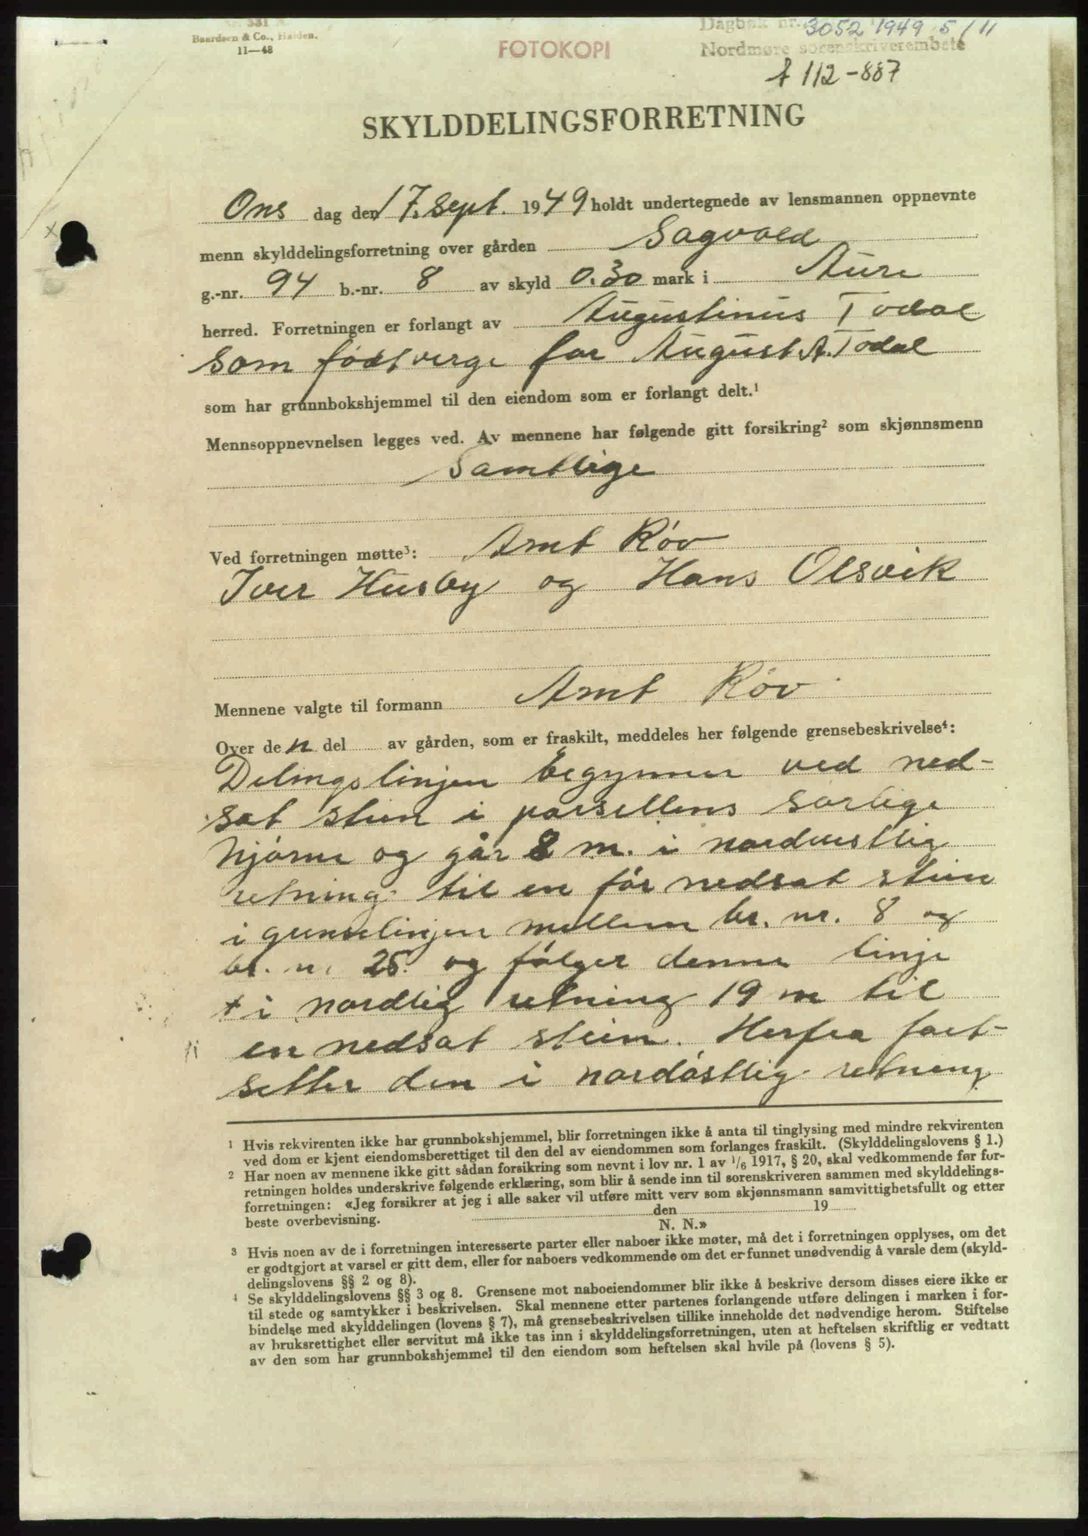 Nr. 531 A.
Baardsen & Co., Halden.
11—48
FOTOKOPI
Dagbok nr. 3052 1949 5/11
Nordmøre sorenskriverembete
A 112-887
SKYLDDELINGSFORRETNING
Ons dag den 17. Sept. 1949 holdt undertegnede av lensmannen oppnevnte
menn skylddelingsforretning over gården Sagvold
g.-nr. 94 b.-nr. 8 av skyld 0.30 mark i Aure
herred. Forretningen er forlangt av Augustinus Todal
som født verge for August A. Todal
som har grunnbokshjemmel til den eiendom som er forlangt delt.¹
Mennsoppnevnelsen legges ved. Av mennene har følgende gitt forsikring² som skjønnsmenn
Samtlige
Ved forretningen møtte³: Arnt Røv
Iver Husby og Hans Olsvik
Mennene valgte til formann Arnt Røv
Over den del av gården, som er fraskilt, meddeles her følgende grensebeskrivelse⁴:
Delingslinjen begynner ved ned-
sat stein i parsellens sørlige
hjørne og går 8 m. i nordvestlig
retning til en før nedsat stein
i grenselinjen mellem br. nr. 8 og
br. n. 25 og følger denne linje
+ i nordlig retning 19 m til
en nedsat stein. Herfra fort-
setter den i nordøstlig retning
¹ Hvis rekvirenten ikke har grunnbokshjemmel, blir forretningen ikke å anta til tinglysing med mindre rekvirenten
ved dom er kjent eiendomsberettiget til den del av eiendommen som forlanges fraskilt. (Skylddelingslovens § 1.)
² Har noen av mennene ikke gitt sådan forsikring som nevnt i lov nr. 1 av 1/6 1917, § 20, skal vedkommende før for-
retningen holdes underskrive følgende erklæring, som blir å sende inn til sorenskriveren sammen med skylddelings-
forretningen: «Jeg forsikrer at jeg i alle saker vil utføre mitt verv som skjønnsmann samvittighetsfullt og etter
beste overbevisning. den 19
N. N.»
³ Hvis noen av de i forretningen interesserte parter eller naboer ikke møter, må det i forretningen opplyses, om det
er godtgjort at varsel er gitt dem, eller for naboers vedkommende om det er funnet unødvendig å varsle dem (skyld-
delingslovens §§ 2 og 8).
⁴ Se skylddelingslovens §§ 3 og 8. Grensene mot naboeiendommer blir ikke å beskrive dersom disses eiere ikke er
til stede og samtykker i beskrivelsen. Skal mennene etter partenes forlangende utføre delingen i marken i for-
bindelse med skylddelingen (lovens § 7), må grensebeskrivelsen tillike inneholde det nødvendige herom. Stiftelse
av bruksrettighet eller servitut må ikke tas inn i skylddelingsforretningen, uten at heftelsen skriftlig er vedtatt
av den som har grunnbokshjemmel til den eiendom som heftelsen skal hvile på (lovens § 5).